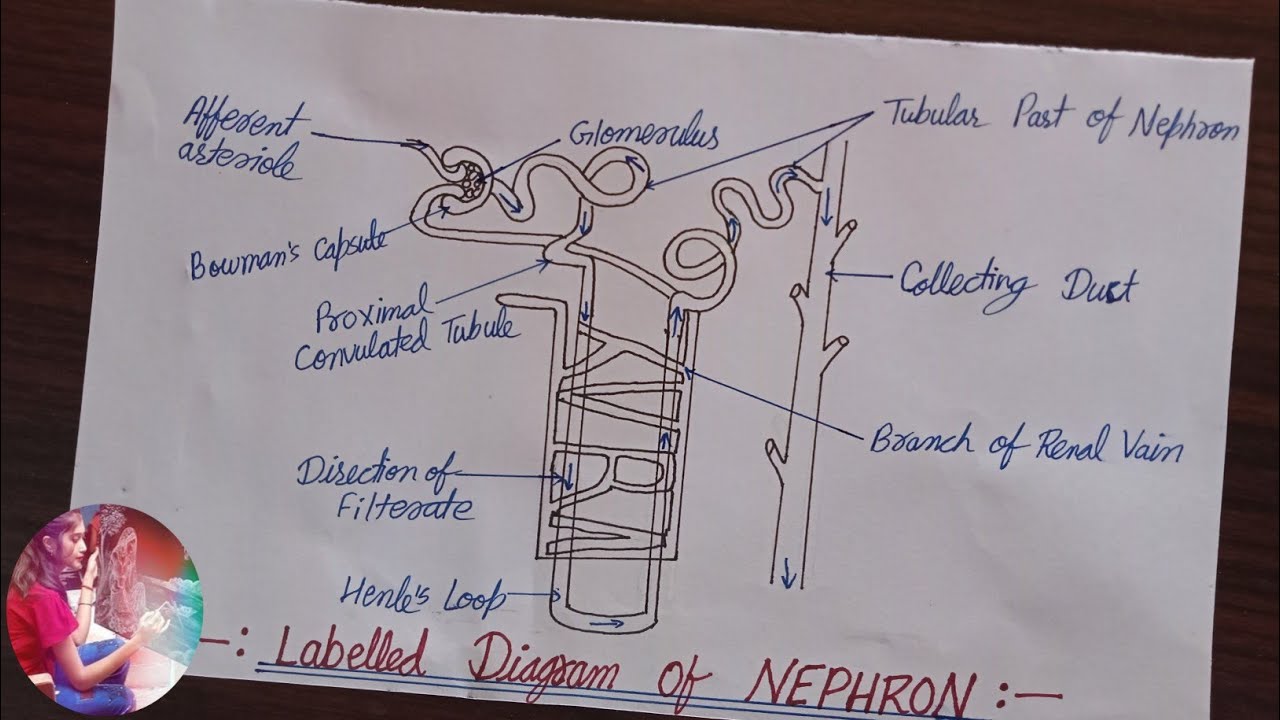 Afferent
arteriole
Glomerulus
Tubular Part of Nephron
Bowman's Capsule
Proximal
Convulated Tubule
Collecting Duct
Branch of Renal Vain
Direction of
Filterate
Henle's Loop
-: Labelled Diagram of NEPHRON :-